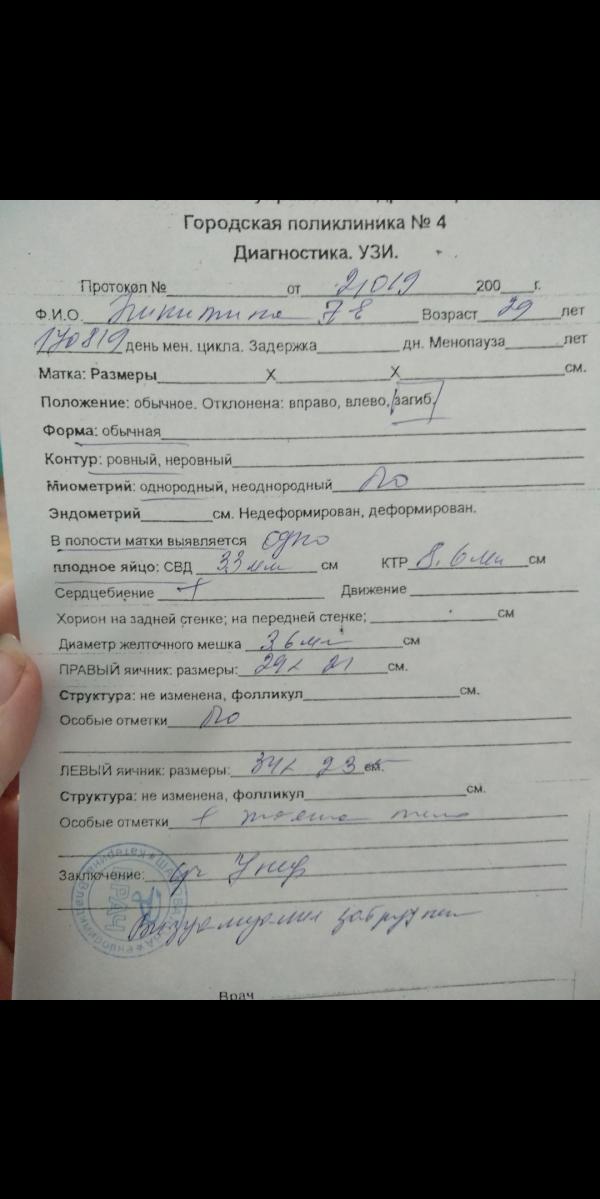 Городская поликлиника № 4
Диагностика. УЗИ.
Протокол № от 21019 200 г.
Ф.И.О. Никитина Возраст 29 лет
170819 день мен. цикла. Задержка дн. Менопауза лет
Матка: Размеры Х Х см.
Положение: обычное. Отклонена: вправо, влево, загиб.
Форма: обычная
Контур: ровный, неровный
Миометрий: однородный, неоднородный
Эндометрий см. Недеформирован, деформирован.
В полости матки выявляется одно
плодное яйцо: СВД 33 мм см КТР 8,6 мм см
Сердцебиение + Движение
Хорион на задней стенке; на передней стенке; см
Диаметр желточного мешка 3,6 мм см
ПРАВЫЙ яичник: размеры: 29 х 21 см.
Структура: не изменена, фолликул см.
Особые отметки
ЛЕВЫЙ яичник: размеры: 34 х 23 см.
Структура: не изменена, фолликул см.
Особые отметки желтое тело
Заключение: 7 нед
Визуализация затруднена
Врач